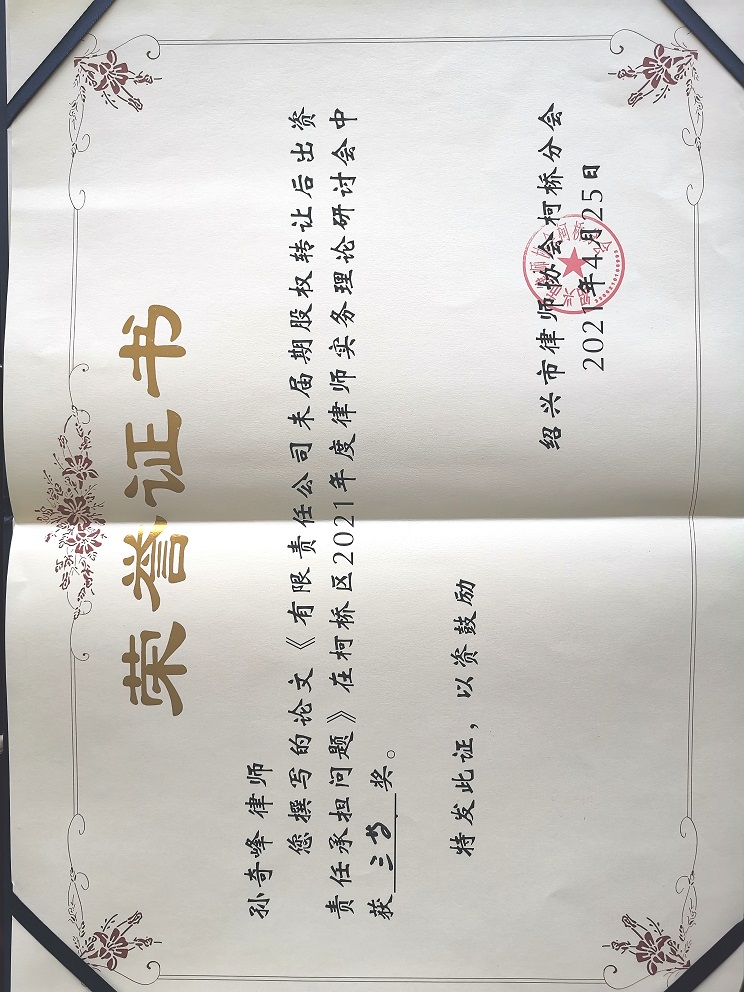 荣誉证书
孙奇峰 律师
您撰写的论文《有限责任公司未届期股权转让后出资
责任承担问题》在柯桥区2021年度律师实务理论研讨会中
获 三等 奖。
特发此证，以资鼓励
绍兴市律师协会柯桥分会
2021年4月25日